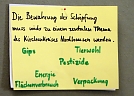 Die Bewahrung der Schöpfung
muss wieder zu einem zentralen Thema
des Kirchenkreises Nordhausen werden.
Gips Tierwohl
Pestizide
Energie
Flächenverbrauch Verpackung